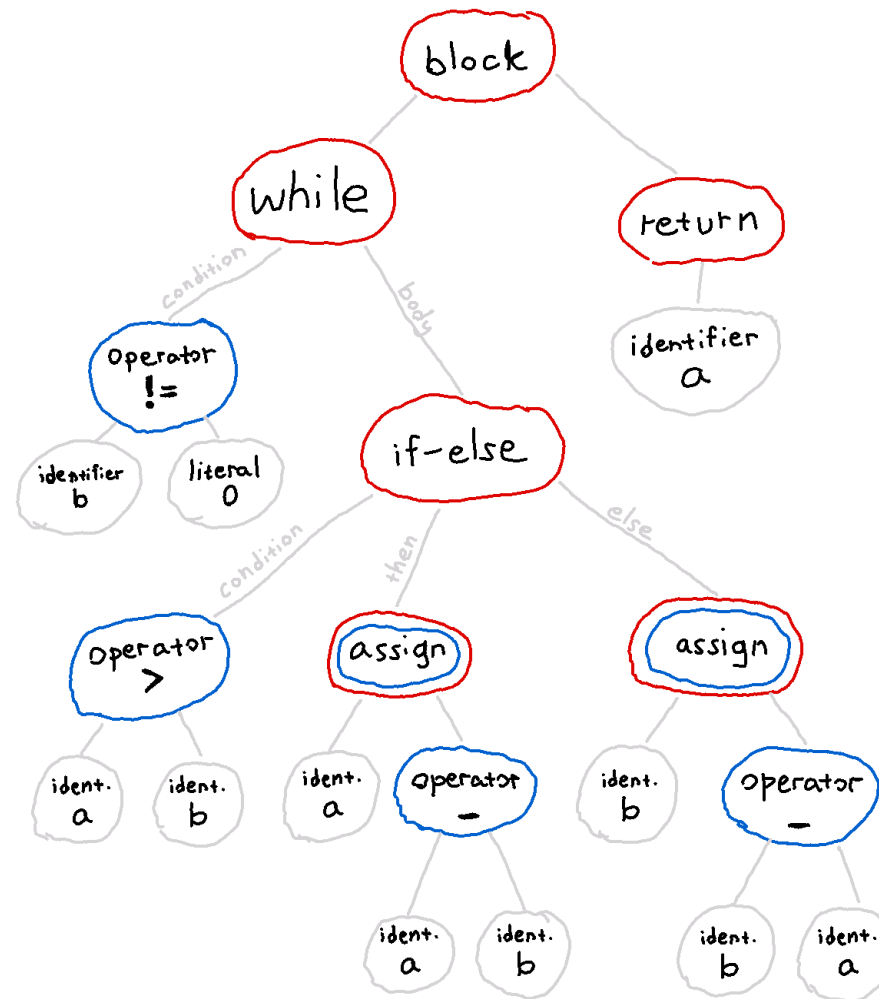 block
while
return
condition
body
identifier
a
operator
!=
identifier
b
literal
0
if-else
condition
then
else
operator
>
assign
assign
ident.
a
ident.
b
ident.
a
operator
-
ident.
b
operator
-
ident.
a
ident.
b
ident.
b
ident.
a